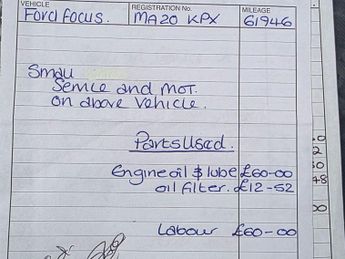 VEHICLE REGISTRATION No. MILEAGE
Ford Focus. MA20 KPX 61946
Small
Service and MOT.
on above vehicle.
Parts Used.
Engine oil $ lube £60-00
oil filter. £12-52
Labour £60-00